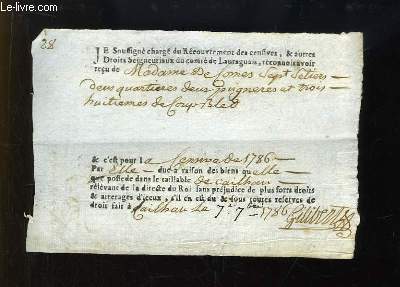 28
JE Soussigné chargé du Récouvrement des censives, & autres
Droits Seigneuriaux du comté de Lauraguais, réconnois avoir
réçu de Madame De Comes Sept Setiers
deux quartieres deux pugneres et trois
huitiemes de Coup Bled
& c'est pour la Censive de 1786
Par Elle due à raison des biens qu'elle
que possede dans le taillable de Cailhau
rélévant de la directe du Roi sans préjudice de plus forts droits
& arrérages d'iceux, s'il en est dû & sous toutes reserves de
droit fait à Cailhau le 7e 7bre 1786 Gilibert
www.le-livre.com